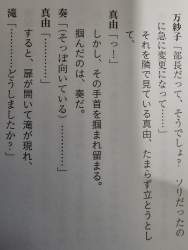 万紗子「部長だって、そうでしょ? ソリだったの
に急に変更になって……」
それを隣で見ている真由、たまらず立とうとし
て、
真由「っ!」
しかし、その手首を掴まれ留まる。
掴んだのは、奏だ。
奏「(そっぽ向いている)…………」
真由「…………」
すると、扉が開いて滝が現れ、
滝「……どうしましたか?」